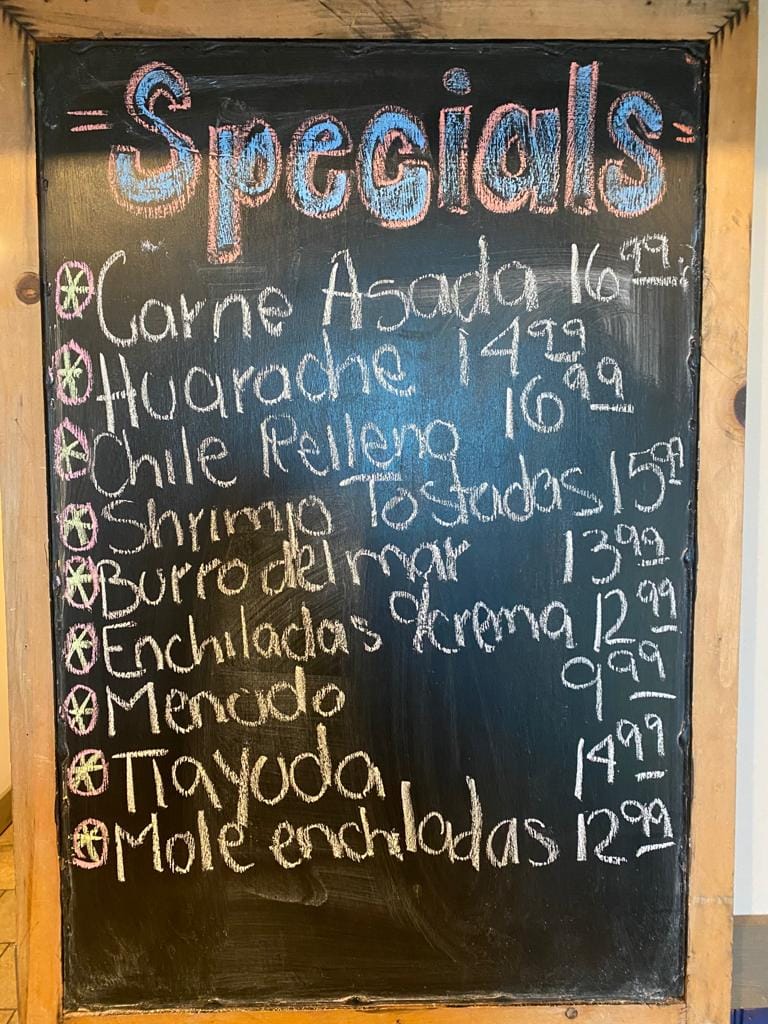 Specials
Carne Asada 16 99
Huarache 14 99
Chile Relleno 16 99
Shrimp Tostadas 15 99
Burro del mar 13 99
Enchiladas d crema 12 99
Menudo 9 99
Tlayuda 14 99
Mole enchiladas 12 99